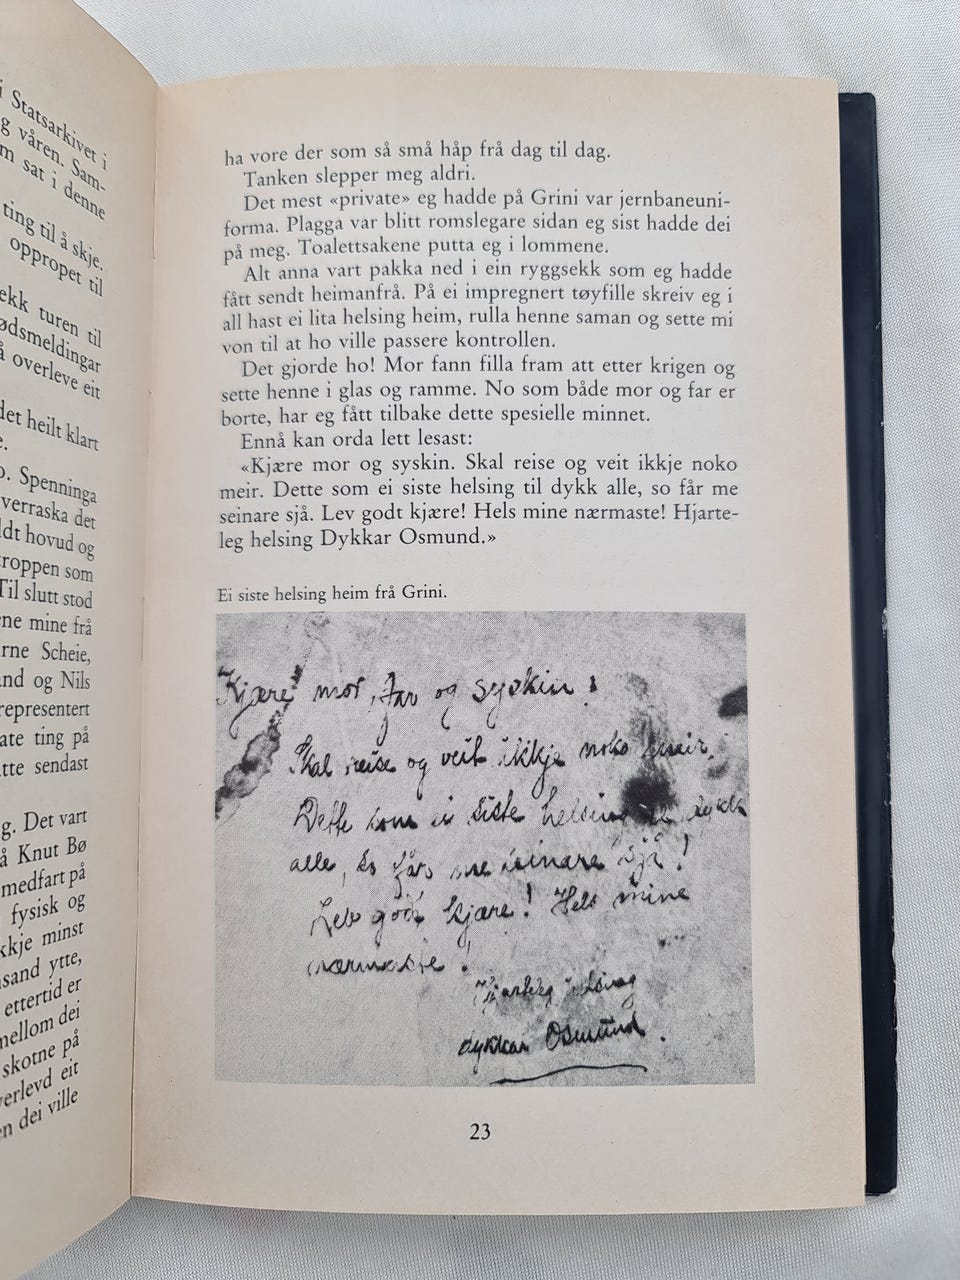 i Statsarkivet i
g våren. Sam-
m sat i denne
ting til å skje.
oppropet til
ekk turen til
ødsmeldingar
å overleve eit
det heilt klart
e.
o. Spenninga
verraska det
ldt hovud og
troppen som
Til slutt stod
ne mine frå
arne Scheie,
and og Nils
representert
ate ting på
tte sendast
g. Det vart
å Knut Bø
medfart på
fysisk og
kkje minst
sand ytte,
ettertid er
mellom dei
skotne på
verlevd eit
en dei ville
ha vore der som så små håp frå dag til dag.
Tanken slepper meg aldri.
Det mest «private» eg hadde på Grini var jernbaneuni-
forma. Plagga var blitt romslegare sidan eg sist hadde dei
på meg. Toalettsakene putta eg i lommene.
Alt anna vart pakka ned i ein ryggsekk som eg hadde
fått sendt heimanfrå. På ei impregnert tøyfille skreiv eg i
all hast ei lita helsing heim, rulla henne saman og sette mi
von til at ho ville passere kontrollen.
Det gjorde ho! Mor fann filla fram att etter krigen og
sette henne i glas og ramme. No som både mor og far er
borte, har eg fått tilbake dette spesielle minnet.
Ennå kan orda lett lesast:
«Kjære mor og syskin. Skal reise og veit ikkje noko
meir. Dette som ei siste helsing til dykk alle, so får me
seinare sjå. Lev godt kjære! Hels mine nærmaste! Hjarte-
leg helsing Dykkar Osmund.»
Ei siste helsing heim frå Grini.
Kjære mor, far og syskin!
Skal reise og veit ikkje noko meir.
Dette som ei siste helsing til dykk
alle, so får me seinare sjå!
Lev godt kjære! Hels mine
nærmaste!
Hjarteleg helsing
dykkar Osmund.
23